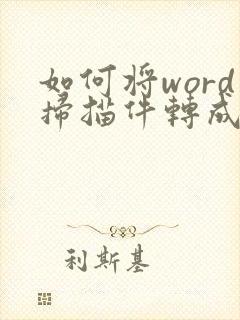 如何将word
掃描件轉成
利斯基